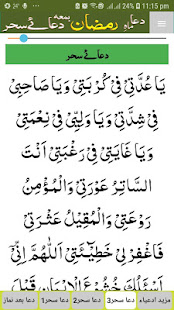 11:15 pm
دعا ماہ رمضان بمعہ دعائے سحر
دعائے سحر
يَا عُدَّتِيْ فِيْ كُرْبَتِيْ وَيَا صَاحِبِيْ
فِيْ شِدَّتِيْ وَيَا وَلِيِّيْ فِيْ نِعْمَتِيْ
وَيَا غَايَتِيْ فِيْ رَغْبَتِيْ اَنْتَ
السَّاتِرُ عَوْرَتِيْ وَالْمُؤْمِنُ
رَوْعَتِيْ وَالْمُقِيْلُ عَثْرَتِيْ
فَاغْفِرْلِيْ خَطِيْٓئَتِيْ اَللّٰهُمَّ اِنِّيْ
اَسْئَلُكَ خُشُوْعَ الْاِيْمَانِ قَبْلَ
دعا بعد نماز دعا سحر1 دعا سحر2 دعا سحر3 مزید ادعیاء